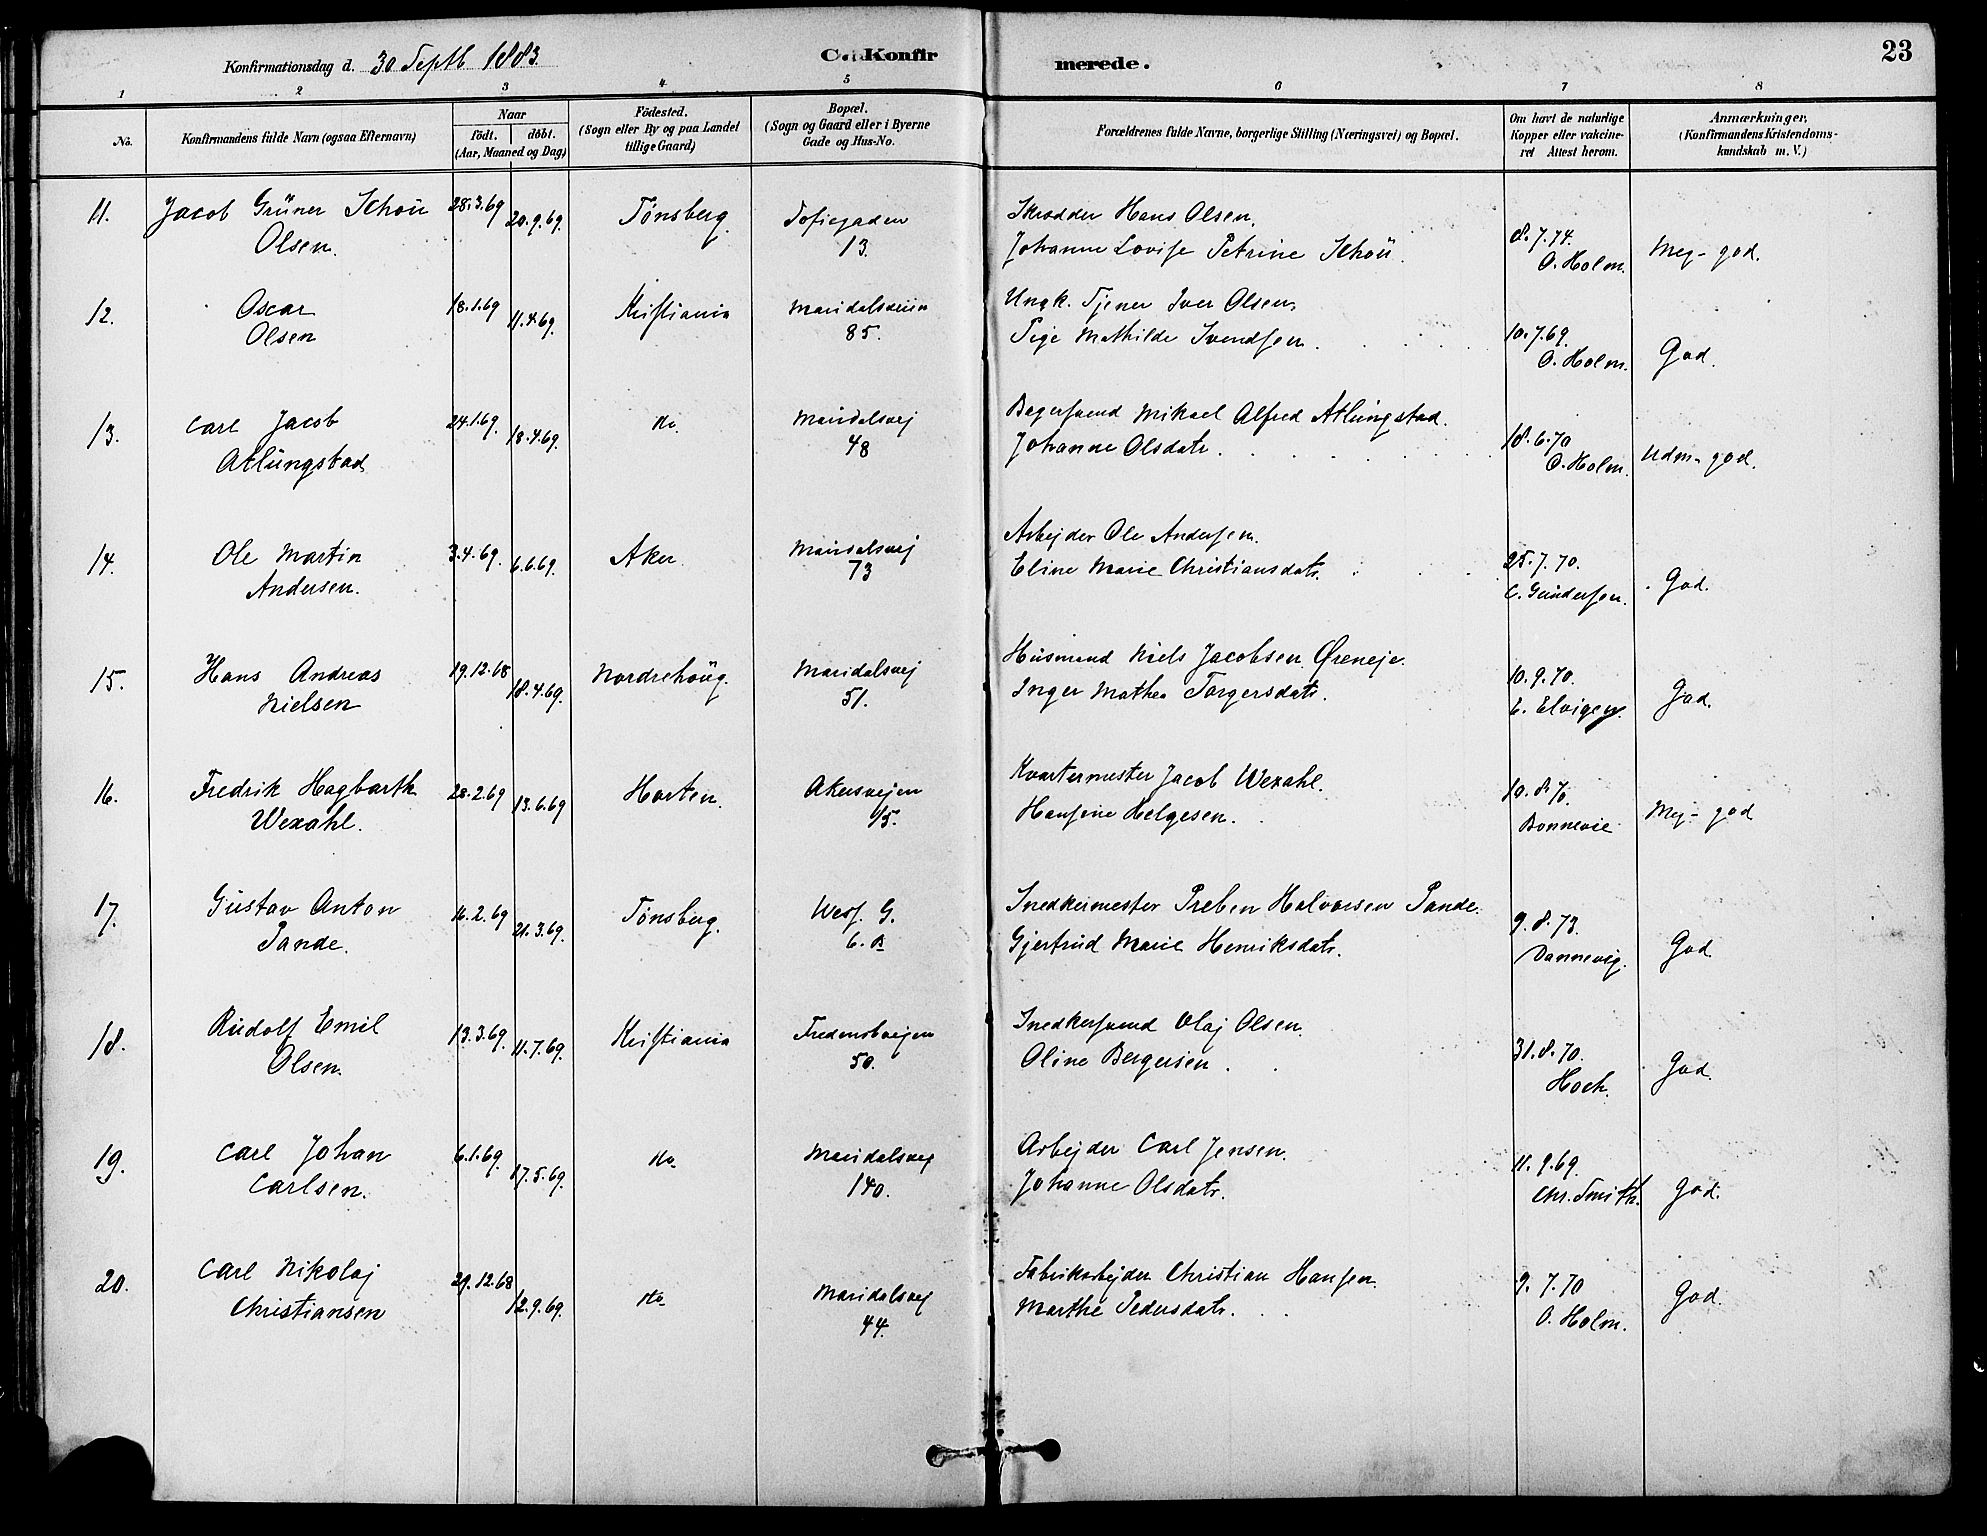 Konfirmationsdag d. 30 Septb 1883.
C. Konfirmerede.
23
1 2 3 4 5 6 7 8
No.
Konfirmandens fulde Navn (ogsaa Efternavn)
Naar
födt. döbt.
(Aar, Maaned og Dag)
Födested.
(Sogn eller By og paa Landet
tillige Gaard)
Bopæl.
(Sogn og Gaard eller i Byerne
Gade og Hus-No.
Forældrenes fulde Navne, borgerlige Stilling (Næringsvei) og Bopæl.
Om havt de naturlige
Kopper eller vakcine-
ret Attest herom.
Anmærkninger,
(Konfirmandens Kristendoms-
kundskab m. V.)
11. Jacob Grüner Schou 28.3.69 20.9.69. Tønsberg. Sofiegaden Skrædder Hans Olsen.
Olsen. 13. Johanne Lovise Petrine Schou. 8.7.74. Meg. god.
O. Holm.
12. Oscar 18.1.69 11.4.69. Kristiania Maridalsveien Ungk. Tjener Iver Olsen,
Olsen 85. Pige Mathilde Svendsen. 10.7.69. God.
O. Holm.
13. Carl Jacob 24.1.69. 18.4.69. do. Maridalsvej Bagersvend Mikael Alfred Atlungstad.
Atlungstad 48 Johanne Olsdatr. 18.6.70 Udm. god.
O. Holm.
14. Ole Martin 3.4.69. 6.6.69. Aker. Maridalsvej Arbejder Ole Andersen.
Andersen. 73 Eline Marie Christiansdatr. 25.7.70. God.
C. Gundersen.
15. Hans Andreas 19.12.68 18.4.69. Nordrehoug. Maridalsvej Husmand Niels Jacobsen Øreneje.
Nielsen 51. Inger Mathea Torgersdatr. 10.9.70. God.
E. Elvigen.
16. Fredrik Hagbarth 28.2.69 13.6.69 Horten. Akersvejen Kvartermester Jacob Wexahl.
Wexahl. 15. Hansine Helgesen. 10.8.70. Meg. god
Bonnevie
17. Gustav Anton 16.2.69 21.3.69. Tønsberg. Wess. G. Snedkermester Preben Halvorsen Pande.
Pande. 6. B Gjertrud Marie Henriksdatr. 9.8.73. God
Dannevig.
18. Rudolf Emil 13.3.69. 11.7.69. Kristiania Fredensbvejen Snedkersvend Olaj Olsen
Olsen. 50. Oline Bergersen. 31.8.70. God.
Hoch.
19. Carl Johan 6.1.69. 17.5.69. do. Maridalsvej Arbejder Carl Jensen.
Carlsen. 140. Johanne Olsdatr. 11.9.69. God.
Chr. Smith.
20. Carl Nikolaj 29.12.68 12.9.69. do. Maridalsvej Fabrikarbejder Christian Hansen.
Christiansen 44. Marthe Pedersdatr. 9.7.70 God.
O. Holm.